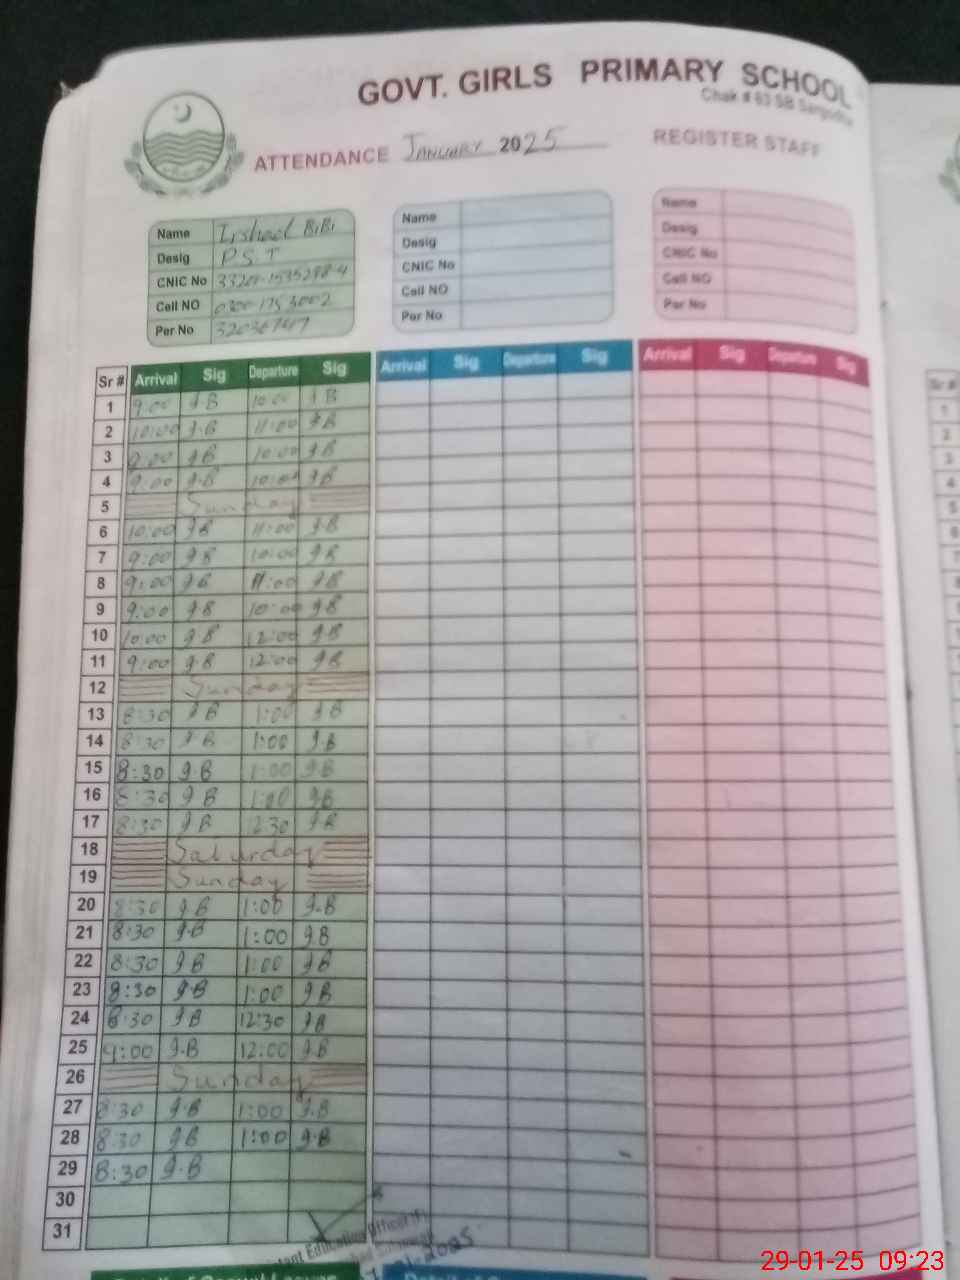 GOVT. GIRLS PRIMARY SCHOOL
Chak # 63 SB Sargodha
ATTENDANCE JANUARY 2025 REGISTER STAFF
Name Irshad BiBi Name Name
Desig P.S.T Desig Desig
CNIC No CNIC No CNIC No
Cell NO Cell NO Cell NO
Per No Per No Per No
Sr # Arrival Sig Departure Sig Arrival Sig Departure Sig Arrival Sig Departure Sig
1 9:00 I.B 10:00 I.B
2 10:00 I.B 11:00 I.B
3 9:00 I.B 10:00 I.B
4 9:00 I.B 10:00 I.B
5 Sunday
6 10:00 I.B 11:00 I.B
7 9:00 I.B 10:00 I.B
8 9:00 I.B 11:00 I.B
9 9:00 I.B 10:00 I.B
10 10:00 I.B 12:00 I.B
11 9:00 I.B 12:00 I.B
12 Sunday
13 8:30 I.B 1:00 I.B
14 8:30 I.B 1:00 I.B
15 8:30 I.B 1:00 I.B
16 8:30 I.B 1:00 I.B
17 8:30 I.B 12:30 I.B
18 Saturday
19 Sunday
20 8:30 I.B 1:00 I.B
21 8:30 I.B 1:00 I.B
22 8:30 I.B 1:00 I.B
23 8:30 I.B 1:00 I.B
24 8:30 I.B 12:30 I.B
25 9:00 I.B 12:00 I.B
26 Sunday
27 8:30 I.B 1:00 I.B
28 8:30 I.B 1:00 I.B
29 8:30 I.B
30
31
29-01-25 09:23